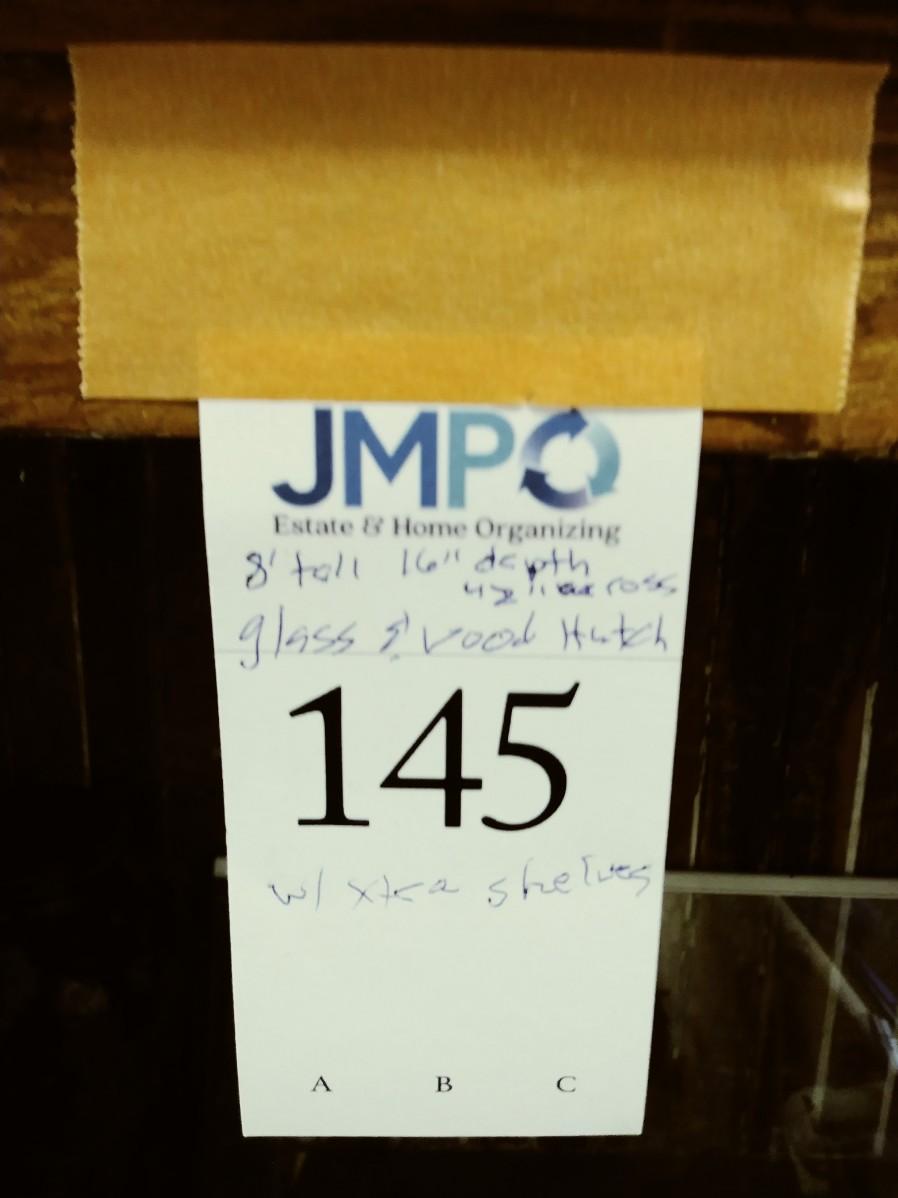 JMPO
Estate & Home Organizing
8' tall 16" depth
42" across
glass & wood Hutch
145
w/ xtra shelves
A B C